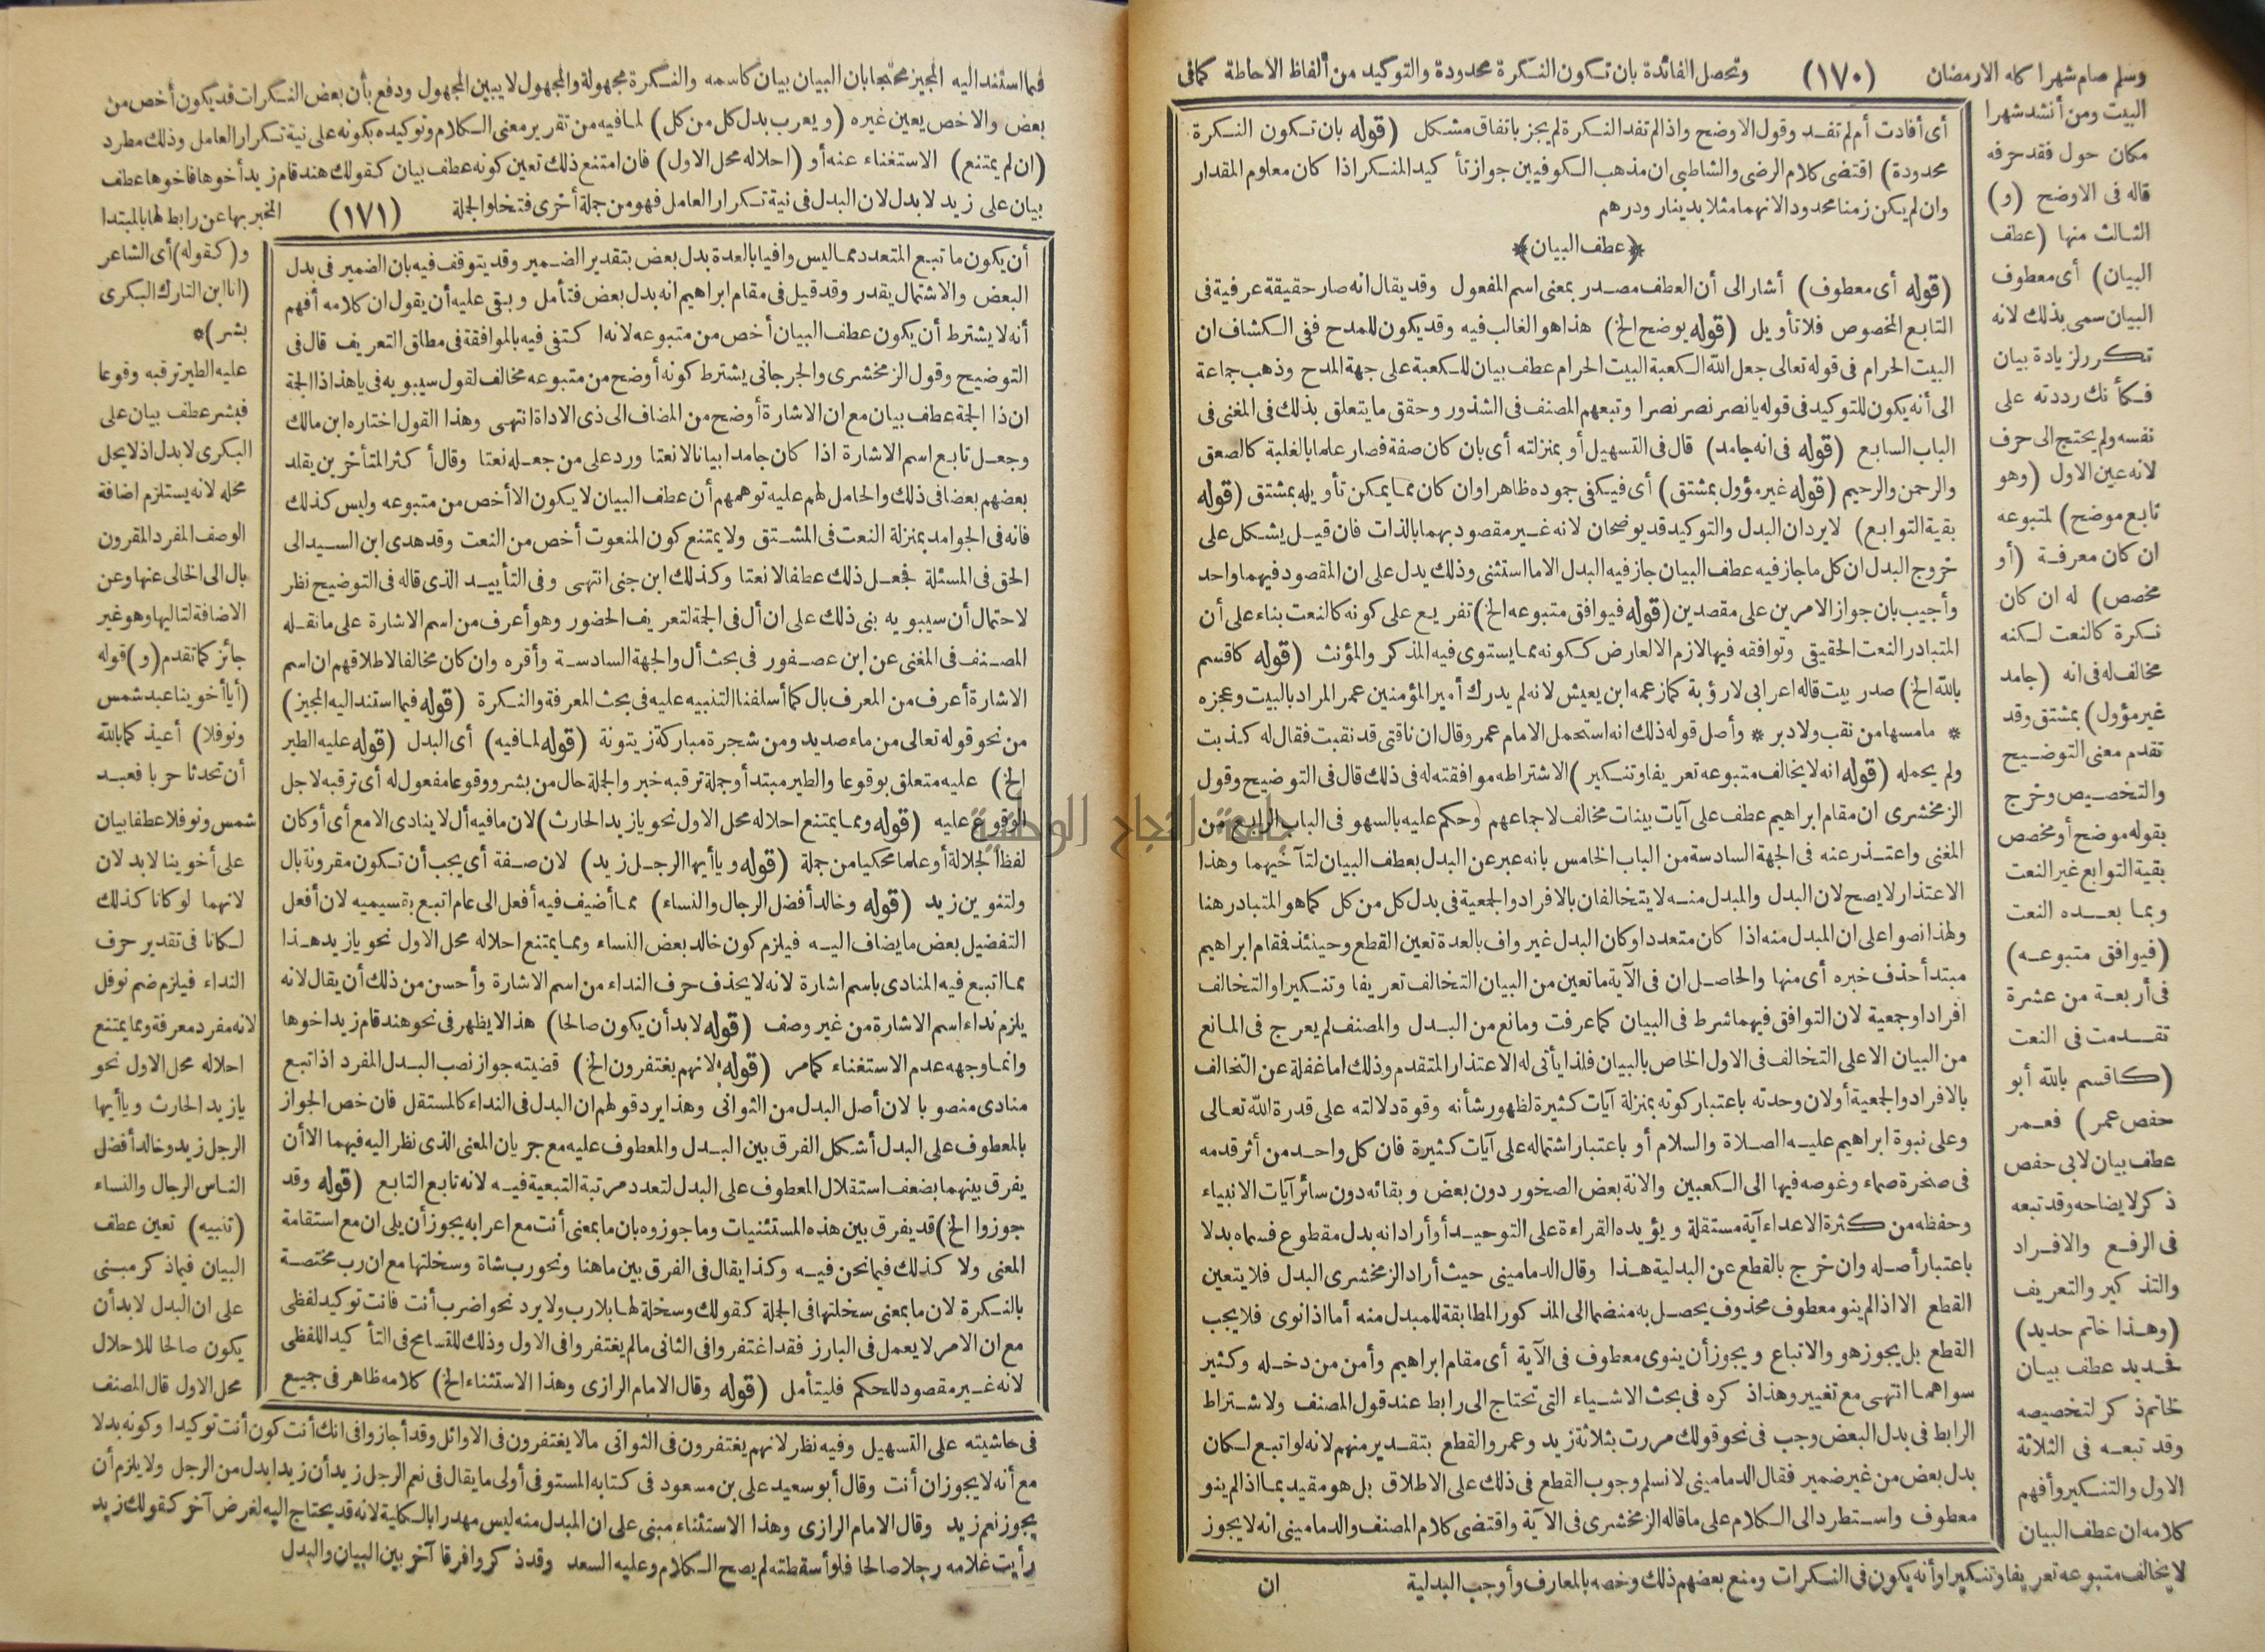 وسلم صام شهرا كله الا رمضان (١٧٠) وتحصل الفائدة بان تكون النكرة محدودة والتوكيد من ألفاظ الاحاطة كمافى
البيت ومن أنشد شهرا
مكان حول فقد حرفه
قاله فى الاوضح (و)
الثالث منها (عطف
البيان) أى معطوف
البيان سمى بذلك لانه
تكرر لزيادة بيان
فكأنك رددته على
نفسه ولم يحتج الى حرف
لانه عين الاول (وهو
تابع موضح) لمتبوعه
ان كان معرفة (أو
مخصص) له ان كان
نكرة كالنعت لكنه
مخالف له فى انه (جامد
غير مؤول) بمشتق وقد
تقدم معنى التوضيح
والتخصيص وخرج
بقوله موضح أو مخصص
بقية التوابع غير النعت
وبما بعده النعت
(فيوافق متبوعه)
فى أربعة من عشرة
تقدمت فى النعت
(كاقسم بالله أبو
حفص عمر) فعمر
عطف بيان لابى حفص
ذكر لايضاحه وقد تبعه
فى الرفع والافراد
والتذكير والتعريف
(وهذا خاتم حديد)
فحديد عطف بيان
لخاتم ذكر لتخصيصه
وقد تبعه فى الثلاثة
الاول والتنكير وأفهم
كلامه ان عطف البيان
لا يخالف متبوعه تعريفا وتنكيرا وأنه يكون فى النكرات ومنع بعضهم ذلك وخصه بالمعارف وأوجب البدلية
ان
أى أفادت أم لم تفد وقول الاوضح واذا لم تفد النكرة لم يجز باتفاق مشكل (قوله بان تكون النكرة
محدودة) اقتضى كلام الرضى والشاطبى ان مذهب الكوفيين جواز تأكيد المنكر اذا كان معلوم المقدار
وان لم يكن زمنا محدود الانهما مثلا بدينار ودرهم
*(عطف البيان)*
(قوله أى معطوف) أشار الى أن العطف مصدر بمعنى اسم المفعول وقد يقال انه صار حقيقة عرفية فى
التابع المخصوص فلا تأويل (قوله يوضح الخ) هذا هو الغالب فيه وقد يكون للمدح ففى الكشاف ان
البيت الحرام فى قوله تعالى جعل الله الكعبة البيت الحرام عطف بيان للكعبة على جهة المدح وذهب جماعة
الى أنه يكون للتوكيد فى قوله يا نصر نصر نصرا وتبعهم المصنف فى الشذور وحقق ما يتعلق بذلك فى المغنى فى
الباب السابع (قوله فى انه جامد) قال فى التسهيل أو بمنزلته أى بان كان صفة فصار علما بالغلبة كالصعق
والرحمن والرحيم (قوله غير مؤول بمشتق) أى فيكفى جموده ظاهرا وان كان مما يمكن تأويله بمشتق (قوله
بقية التوابع) لا يرد ان البدل والتوكيد قد يوضحان لانه غير مقصود بهما بالذات فان قيل يشكل على
خروج البدل ان كل ما جاز فيه عطف البيان جاز فيه البدل الا ما استثنى وذلك يدل على ان المقصود فيهما واحد
وأجيب بان جواز الامرين على مقصدين (قوله فيوافق متبوعه الخ) تفريع على كونه كالنعت بناء على أن
المتبادر النعت الحقيقى وتوافقه فيها لازم الا لعارض ككونه مما يستوى فيه المذكر والمؤنث (قوله كاقسم
بالله الخ) صدر بيت قاله اعرابى لا رؤبة كما زعمه ابن يعيش لانه لم يدرك أمير المؤمنين عمر المراد بالبيت وعجزه
* ما مسها من نقب ولا دبر * وأصل قوله ذلك انه استحمل الامام عمر وقال ان ناقتى قد نقبت فقال له كذبت
ولم يحمله (قوله انه لا يخالف متبوعه تعريفا وتنكيرا) الاشتراطه موافقته له فى ذلك قال فى التوضيح وقول
الزمخشرى ان مقام ابراهيم عطف على آيات بينات مخالف لاجماعهم وحكم عليه بالسهو فى الباب الرابع من
المغنى واعتذر عنه فى الجهة السادسة من الباب الخامس بانه عبر عن البدل بعطف البيان لتآخيهما وهذا
الاعتذار لا يصح لان البدل والمبدل منه لا يتخالفان بالافراد والجمعية فى بدل كل من كل كما هو المتبادر هنا
ولهذا نصوا على ان المبدل منه اذا كان متعددا وكان البدل غير واف بالعدة تعين القطع وحينئذ فمقام ابراهيم
مبتدأ حذف خبره أى منها والحاصل ان فى الآية ما تعين من البيان التخالف تعريفا وتنكيرا والتخالف
افرادا وجمعية لان التوافق فيهما شرط فى البيان كما عرفت ومانع من البدل والمصنف لم يعرج فى المانع
من البيان الا على التخالف فى الاول الخاص بالبيان فلذا يأتى له الاعتذار المتقدم وذلك اما غفلة عن التخالف
بالافراد والجمعية أو لان وحدته باعتبار كونه بمنزلة آيات كثيرة لظهور شأنه وقوة دلالته على قدرة الله تعالى
وعلى نبوة ابراهيم عليه الصلاة والسلام أو باعتبار اشتماله على آيات كثيرة فان كل واحد من أثر قدمه
فى صخرة صماء وغوصه فيها الى الكعبين والانة بعض الصخور دون بعض وبقائه دون سائر آيات الانبياء
وحفظه من كثرة الاعداء آية مستقلة ويؤيده القراءة على التوحيد أو أراد انه بدل مقطوع فسماه بدلا
باعتبار أصله وان خرج بالقطع عن البدلية هذا وقال الدمامينى حيث أراد الزمخشرى البدل فلا يتعين
القطع الا اذا لم ينو معطوف محذوف يحصل به منضما الى المذكور المطابقة للمبدل منه أما اذا نوى فلا يجب
القطع بل يجوز هو والاتباع ويجوز أن ينوى معطوف فى الآية أى مقام ابراهيم وأمن من دخله وكثير
سواهما انتهى مع تغيير وهذا ذكره فى بحث الاشياء التى تحتاج الى رابط عند قول المصنف ولاشتراط
الرابط فى بدل البعض وجب فى نحو قولك مررت بثلاثة زيد وعمرو القطع بتقدير منهم لانه لو اتبع لكان
بدل بعض من غير ضمير فقال الدمامينى لا نسلم وجوب القطع فى ذلك على الاطلاق بل هو مقيد بما اذا لم ينو
معطوف واستطرد الى الكلام على ما قاله الزمخشرى فى الآية واقتضى كلام المصنف والدمامينى انه لا يجوز
فيما استند اليه المجيز محتجا بان البيان بيان كاسمه والنكرة مجهولة والمجهول لا يبين المجهول ودفع بأن بعض النكرات قد يكون أخص من
بعض والاخص يعين غيره (ويعرب بدل كل من كل) لما فيه من تقرير معنى الكلام وتوكيده بكونه على نية تكرار العامل وذلك مطرد
(ان لم يمتنع) الاستغناء عنه أو (احلاله محل الاول) فان امتنع ذلك تعين كونه عطف بيان كقولك هند قام زيد أخوها فاخوها عطف
بيان على زيد لا بدل لان البدل فى نية تكرار العامل فهو من جملة أخرى فتخلو الجملة (١٧١) المخبر بها عن رابط لها بالمبتدا
و(كقوله) أى الشاعر
(انا ابن التارك البكرى
بشر)*
عليه الطير ترقبه وقوعا
فبشر عطف بيان على
البكرى لا بدل اذ لا يحل
محله لانه يستلزم اضافة
الوصف المفرد المقرون
بال الى الخالى عنها وعن
الاضافة لتاليها وهو غير
جائز كما تقدم (و) قوله
(أيا أخوينا عبد شمس
ونوفلا) أعيذ كما بالله
أن تحدثا حربا فعبد
شمس ونوفلا عطفا بيان
على أخوينا لا بدلان
لانهما لو كانا كذلك
لكانا فى تقدير حرف
النداء فيلزم ضم نوفل
لانه مفرد معرفة ومما يمتنع
احلاله محل الاول نحو
يا زيد الحارث ويا أيها
الرجل زيد وخالد أفضل
الناس الرجال والنساء
(تنبيه) تعين عطف
البيان فيما ذكر مبنى
على ان البدل لا بد أن
يكون صالحا للاحلال
محل الاول قال المصنف
أن يكون ما تبع المتعدد مما ليس وافيا بالعدة بدل بعض بتقدير الضمير وقد يتوقف فيه بان الضمير فى بدل
البعض والاشتمال يقدر وقد قيل فى مقام ابراهيم انه بدل بعض فتأمل وبقى عليه أن يقول ان كلامه أفهم
أنه لا يشترط أن يكون عطف البيان أخص من متبوعه لانه اكتفى فيه بالموافقة فى مطلق التعريف قال فى
التوضيح وقول الزمخشرى والجرجانى يشترط كونه أوضح من متبوعه مخالف لقول سيبويه فى يا هذا ذا الجمة
ان ذا الجمة عطف بيان مع ان الاشارة أوضح من المضاف الى ذى الاداة انتهى وهذا القول اختاره ابن مالك
وجعل تابع اسم الاشارة اذا كان جامدا بيانا لا نعتا ورد على من جعله نعتا وقال أكثر المتأخرين يقلد
بعضهم بعضا فى ذلك والحامل لهم عليه توهمهم أن عطف البيان لا يكون الا أخص من متبوعه وليس كذلك
فانه فى الجوامد بمنزلة النعت فى المشتق ولا يمتنع كون المنعوت أخص من النعت وقد هدى ابن السيد الى
الحق فى المسئلة فجعل ذلك عطفا لا نعتا وكذلك ابن جنى انتهى وفى التأييد الذى قاله فى التوضيح نظر
لاحتمال أن سيبويه بنى ذلك على ان أل فى الجمة لتعريف الحضور وهو أعرف من اسم الاشارة على ما نقله
المصنف فى المغنى عن ابن عصفور فى بحث أل والجهة السادسة وأقره وان كان مخالفا لاطلاقهم ان اسم
الاشارة أعرف من المعرف بال كما أسلفنا التنبيه عليه فى بحث المعرفة والنكرة (قوله فيما استند اليه المجيز)
من نحو قوله تعالى من ماء صديد ومن شجرة مباركة زيتونة (قوله لما فيه) أى البدل (قوله عليه الطير
الخ) عليه متعلق بوقوعا والطير مبتدأ وجملة ترقبه خبر والجملة حال من بشر ووقوعا مفعول له أى ترقبه لاجل
الوقوع عليه (قوله ومما يمتنع احلاله محل الاول نحو يا زيد الحارث) لان ما فيه أل لا ينادى الا مع أى أو كان
لفظ الجلالة أو علما محكيا من جملة (قوله ويا أيها الرجل زيد) لان صفة أى يجب أن تكون مقرونة بال
ولتنوين زيد (قوله وخالد أفضل الرجال والنساء) مما أضيف فيه أفعل الى عام اتبع بقسيميه لان أفعل
التفضيل بعض ما يضاف اليه فيلزم كون خالد بعض النساء ومما يمتنع احلاله محل الاول نحو يا زيد هذا
مما اتبع فيه المنادى باسم اشارة لانه لا يحذف حرف النداء من اسم الاشارة وأحسن من ذلك أن يقال لانه
يلزم نداء اسم الاشارة من غير وصف (قوله لا بد أن يكون صالحا) هذا لا يظهر فى نحو هند قام زيد اخوها
وانما وجهه عدم الاستغناء كما مر (قوله لانهم يغتفرون الخ) قضيته جواز نصب البدل المفرد اذا تبع
منادى منصوبا لان أصل البدل من الثوانى وهذا يرد قولهم ان البدل فى النداء كالمستقل فان خص الجواز
بالمعطوف على البدل أشكل الفرق بين البدل والمعطوف عليه مع جريان المعنى الذى نظر اليه فيهما الا أن
يفرق بينهما بضعف استقلال المعطوف على البدل لتعدد مرتبة التبعية فيه لانه تابع التابع (قوله وقد
جوزوا الخ) قد يفرق بين هذه المستثنيات وما جوزوه بان ما بمعنى أنت مع اعرابه يجوز أن يلى ان مع استقامة
المعنى ولا كذلك فيما نحن فيه وكذا يقال فى الفرق بين ما هنا ونحو رب شاة وسخلتها مع ان رب مختصة
بالنكرة لان ما بمعنى سخلتها فى الجملة كقولك وسخلة لها بلا رب ولا يرد نحو اضرب أنت فانت توكيد لفظى
مع ان الامر لا يعمل فى البارز فقد اغتفروا فى الثانى ما لم يغتفروا فى الاول وذلك للتسامح فى التأكيد اللفظى
لانه غير مقصود للحكم فليتأمل (قوله وقال الامام الرازى وهذا الاستثناء الخ) كلامه ظاهر فى جميع
فى حاشيته على التسهيل وفيه نظر لانهم يغتفرون فى الثوانى ما لا يغتفرون فى الاوائل وقد أجازوا فى انك أنت كون أنت توكيدا وكونه بدلا
مع أنه لا يجوز ان أنت وقال أبو سعيد على بن مسعود فى كتابه المستوفى أولى ما يقال فى نعم الرجل زيد أن زيدا بدل من الرجل ولا يلزم أن
يجوز نعم زيد وقال الامام الرازى وهذا الاستثناء مبنى على ان المبدل منه ليس مهدرا بالكلية لانه قد يحتاج اليه لغرض آخر كقولك زيد
رأيت غلامه رجلا صالحا فلو أسقطته لم يصح الكلام وعليه السعد وقد ذكروا فرقا آخر بين البيان والبدل
جامعة النجاح الوطنية